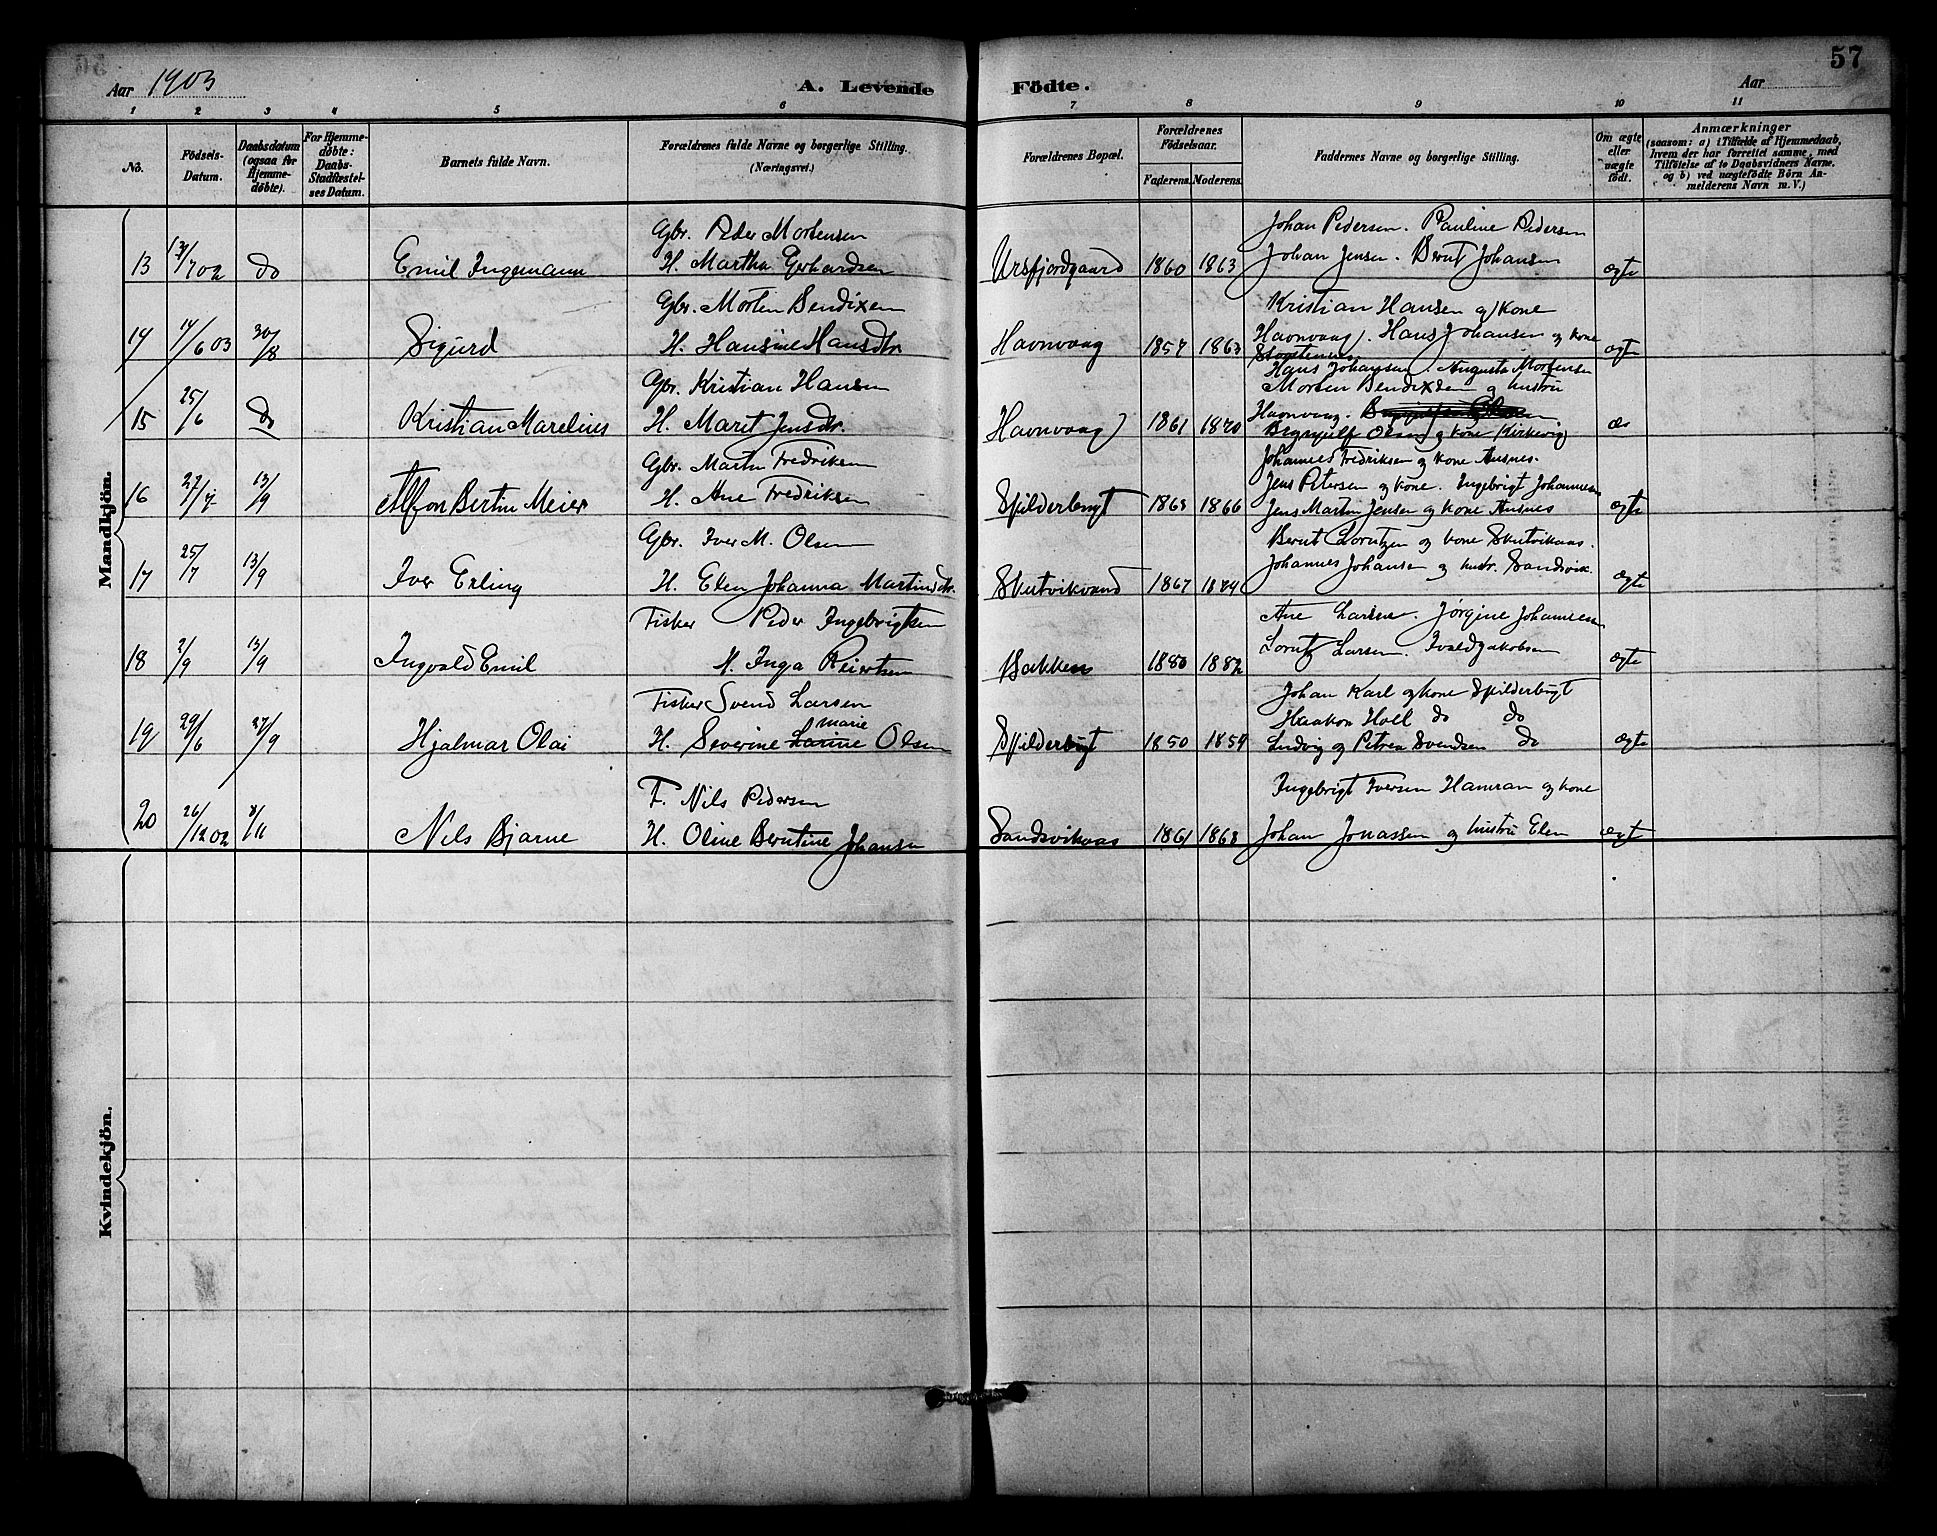 57
Aar 1903
A. Levende Födte.
Aar
1 2 3 4 5 6 7 8 9 10 11
No.
Födsels-Datum.
Daabsdatum (ogsaa for Hjemmedöbte).
For Hjemmedöbte: Daabs-Stadfæstelses Datum.
Barnets fulde Navn.
Forældrenes fulde Navne og borgerlige Stilling.
(Næringsvei.)
Forældrenes Bopæl.
Forældrenes Födselsaar.
Faderens. Moderens.
Faddernes Navne og borgerlige Stilling.
Om ægte eller uægte födt.
Anmærkninger
(saasom: a) i Tilfælde af Hjemmedaab, hvem der har forrettet samme, med Tilföielse af to Daabsvidners Navne, og b) ved uægtefödte Börn Anmelderens Navn m. V.)
Mandkjön.
Gbr. Peder Mortensen
Johan Pedersen. Pauline Pedersen
13 13/7 02 do Emil Ingemann H. Martha Gerhardsen Ursfjordgaard 1860 1863 Johan Jensen. Bernt Johansen ægte
Gbr. Morten Bendixen
Kristian Hansen og kone
14 14/6 03 30/8 Sigurd H. Hansine Hansdtr Havnvaag 1857 1863 Havnvaag. Hans Johansen og kone ægte
Gbr. Kristian Hansen
Hans Johansen. Augusta Mortensen
Morten Bendixsen og hustru
15 25/6 do Kristian Marelius H. Marit Jensdtr. Havnvaag 1861 1870 Havnvaag.
Brynjulf Olsen og kone Kirkevig
Gbr. Martin Fredriksen
Johannes Fredriksen og kone Ausnes.
16 27/7 13/9 Alfon Bertin Meier H. Ane Fredriksen Spilderbugt 1865 1866 Jens Petersen og kone. Ingebrigt Johannesen
Jens Martin Jensen og kone Ausnes ægte
Gbr. Iver M. Olsen
Bernt Lorntzen og kone Skutvikaas.
17 25/7 13/9 Iver Erling H. Elen Johanna Martinsdtr. Skutvikvand 1867 1874 Johannes Johansen og hustr. Sandsvik. ægte
Fisker Peder Ingebrigtsen
Ane Larsen. Jørgine Johannesen
18 2/9 13/9 Ingvald Emil H. Inga Reiertsen Bakken 1880 1882 Lorntz Larsen. Ivald Jakobsen ægte
Fisker Svend Larsen
Johan Karl og kone Spilderbugt
marie
Haakon Holl do do
19 29/6 27/9 Hjalmar Olai H. Severine Larine Olsen Spilderbugt 1850 1859 Ludvig og Petrea Svendsen do ægte
F. Nils Pedersen
Ingebrigt Iversen Hamran og kone
20 26/12 02 8/11 Nils Bjarne H. Oline Berntine Johansen Sandsvikaas 1861 1868 Johan Jonassen og hustru Elen ægt
Kvindekjön.